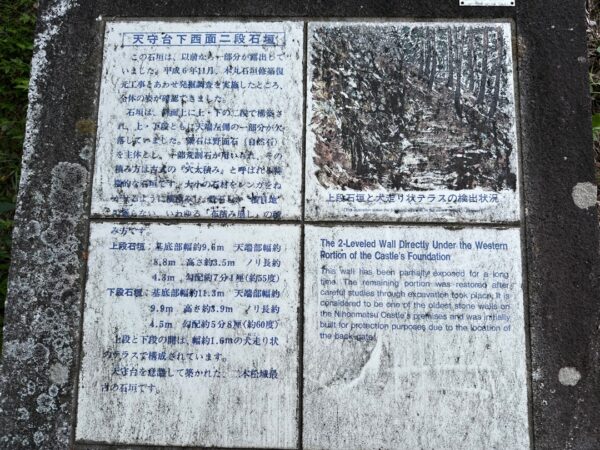 天守台下西面二段石垣
この石垣は、以前から一部分が露出して
いました。平成6年11月、本丸石垣修築復
元工事とあわせ発掘調査を実施したところ、
全体の姿が確認できました。
石垣は、斜面上に上・下の二段で構築さ
れ、上・下段ともに天端左側の一部分が欠
落していました。築石は野面石（自然石）
を主体とし、一部荒割石が用いられ、その
積み方は古式の「穴太積み」と呼ばれる
石垣です。大小の石材をレンガをね
せるように横積み
いわゆる「布積み崩し」の積
み方です。
上段石垣：基底部幅約9.6m 天端部幅約
8.8m 高さ約3.5m ノリ長約
4.3m 勾配約7分1厘(約55度)
下段石垣：基底部幅約11.3m 天端部幅約
9.9m 高さ約3.9m ノリ長約
4.5m 勾配約5分8厘(約60度)
上段と下段の間は、幅約1.6mの犬走り状
のテラスで構成されています。
天守台を意識して築かれた、二本松城最
古の石垣です。
上段石垣と犬走り状テラスの検出状況
The 2-Leveled Wall Directly Under the Western
Portion of the Castle's Foundation
This wall has been partially exposed for a long
time. The remaining portion was restored after
careful studies through excavation took place. It is
considered to be one of the oldest stone walls on
the Nihonmatsu Castle's premises and was initially
built for protection purposes due to the location of
the back gate.